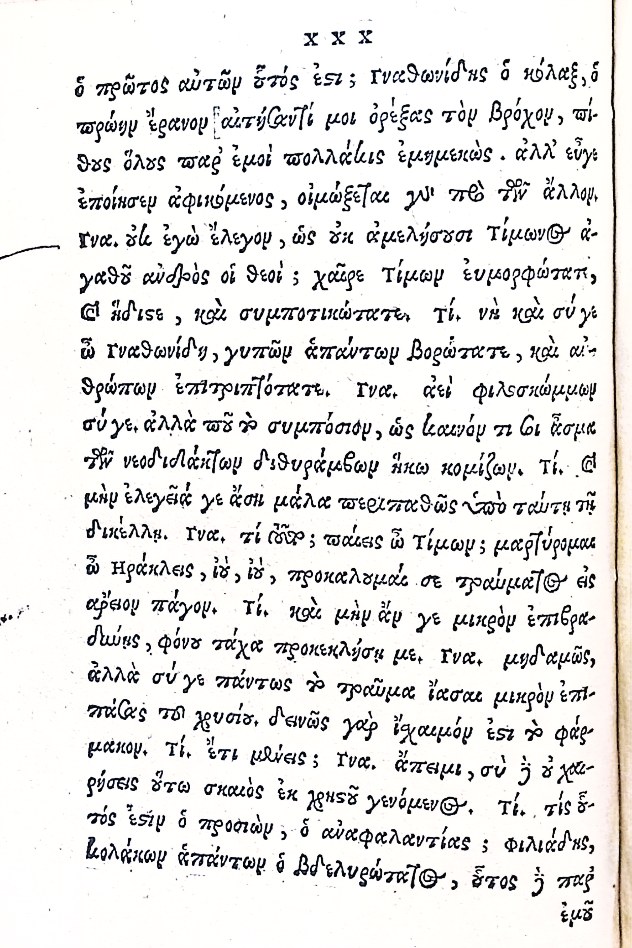 X X X
ὁ πρῶτος αὐτῶν οὗτός ἐστι; Γναθωνίδης ὁ κόλαξ, ὁ
πρώην ἔρανον αἰτήσαντί μοι ὀρέξας τὸν βρόχον, πί-
θους ὅλους παρ' ἐμοὶ πολλάκις ἐμημεκώς. ἀλλ' εὖγε
ἐποίησεν ἀφικόμενος, οἰμώξεται γὰρ πρὸ τῶν ἄλλων.
Γνα. οὐκ ἐγὼ ἔλεγον, ὡς οὐκ ἀμελήσουσι Τίμωνος ἀ-
γαθοῦ ἀνδρὸς οἱ θεοί; χαῖρε Τίμων εὐμορφώτατε,
καὶ ἥδιστε, καὶ συμποτικώτατε. Τί. νὴ καὶ σύ γε
ὦ Γναθωνίδη, γυπῶν ἁπάντων βορώτατε, καὶ ἀν-
θρώπων ἐπιτριπτότατε. Γνα. ἀεὶ φιλοσκώμμων
σύ γε. ἀλλὰ ποῦ τὸ συμπόσιον, ὡς καινόν τι σοι ᾆσμα
τῶν νεοδιδάκτων διθυράμβων ἥκω κομίζων. Τί. καὶ
μὴν ἐλεγεῖά γε ᾄσῃ μάλα περιπαθῶς ὑπὸ ταύτῃ τῇ
δικέλλῃ. Γνα. τί τοῦτο; παίεις ὦ Τίμων; μαρτύρομαι
ὦ Ηράκλεις, ἰού, ἰού, προκαλοῦμαί σε τραύματος εἰς
ἄρειον πάγον. Τί. καὶ μὴν ἄν γε μικρὸν ἐπιβρα-
δύνῃς, φόνου τάχα προκεκλήσῃ με. Γνα. μηδαμῶς,
ἀλλὰ σύ γε πάντως τὸ τραῦμα ἴασαι μικρὸν ἐπι-
πάσας τοῦ χρυσίου. δεινῶς γὰρ ἴσχαιμόν ἐστι τὸ φάρ-
μακον. Τί. ἔτι μένεις; Γνα. ἄπειμι, σὺ δὲ οὐ χαι-
ρήσεις οὕτω σκαιὸς ἐκ χρηστοῦ γενόμενος. Τί. τίς οὗ-
τός ἐστιν ὁ προσιὼν, ὁ ἀναφαλαντίας; Φιλιάδης,
κολάκων ἁπάντων ὁ βδελυρώτατος, οὗτος δὲ παρ'
ἐμοῦ